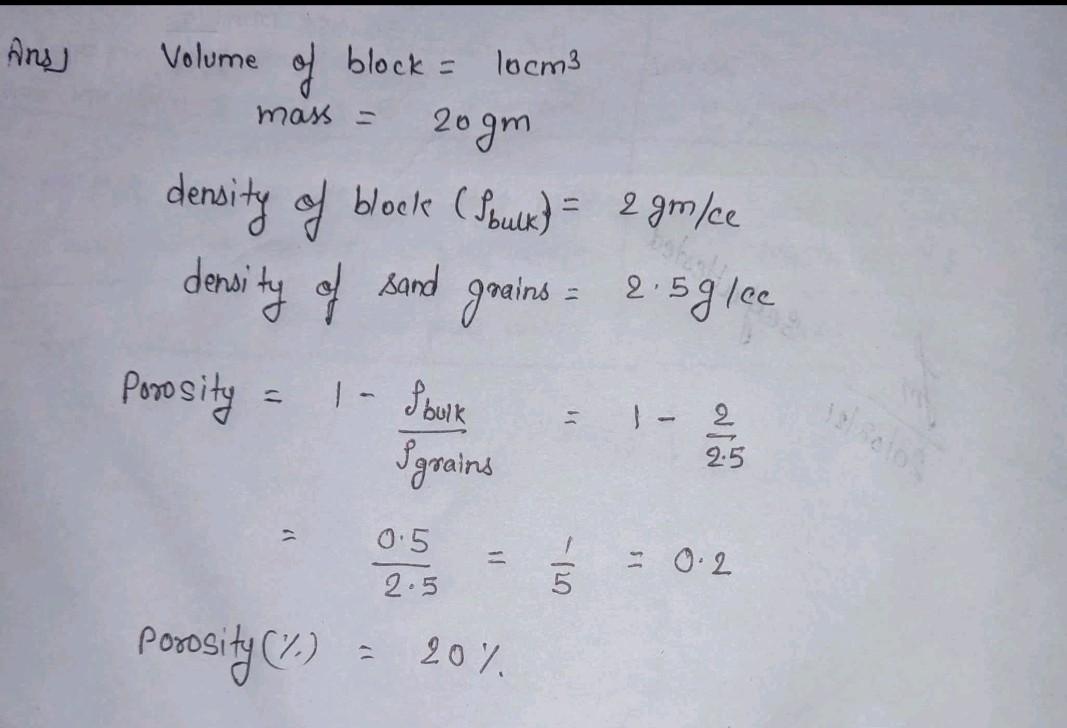 Ans) Volume of block = 10cm³
mass = 20 gm
density of block (ρbulk) = 2 gm/cc
density of sand grains = 2.5g/cc
Porosity = 1 - ρbulk/ρgrains = 1 - 2/2.5
= 0.5/2.5 = 1/5 = 0.2
Porosity (%) = 20 %.